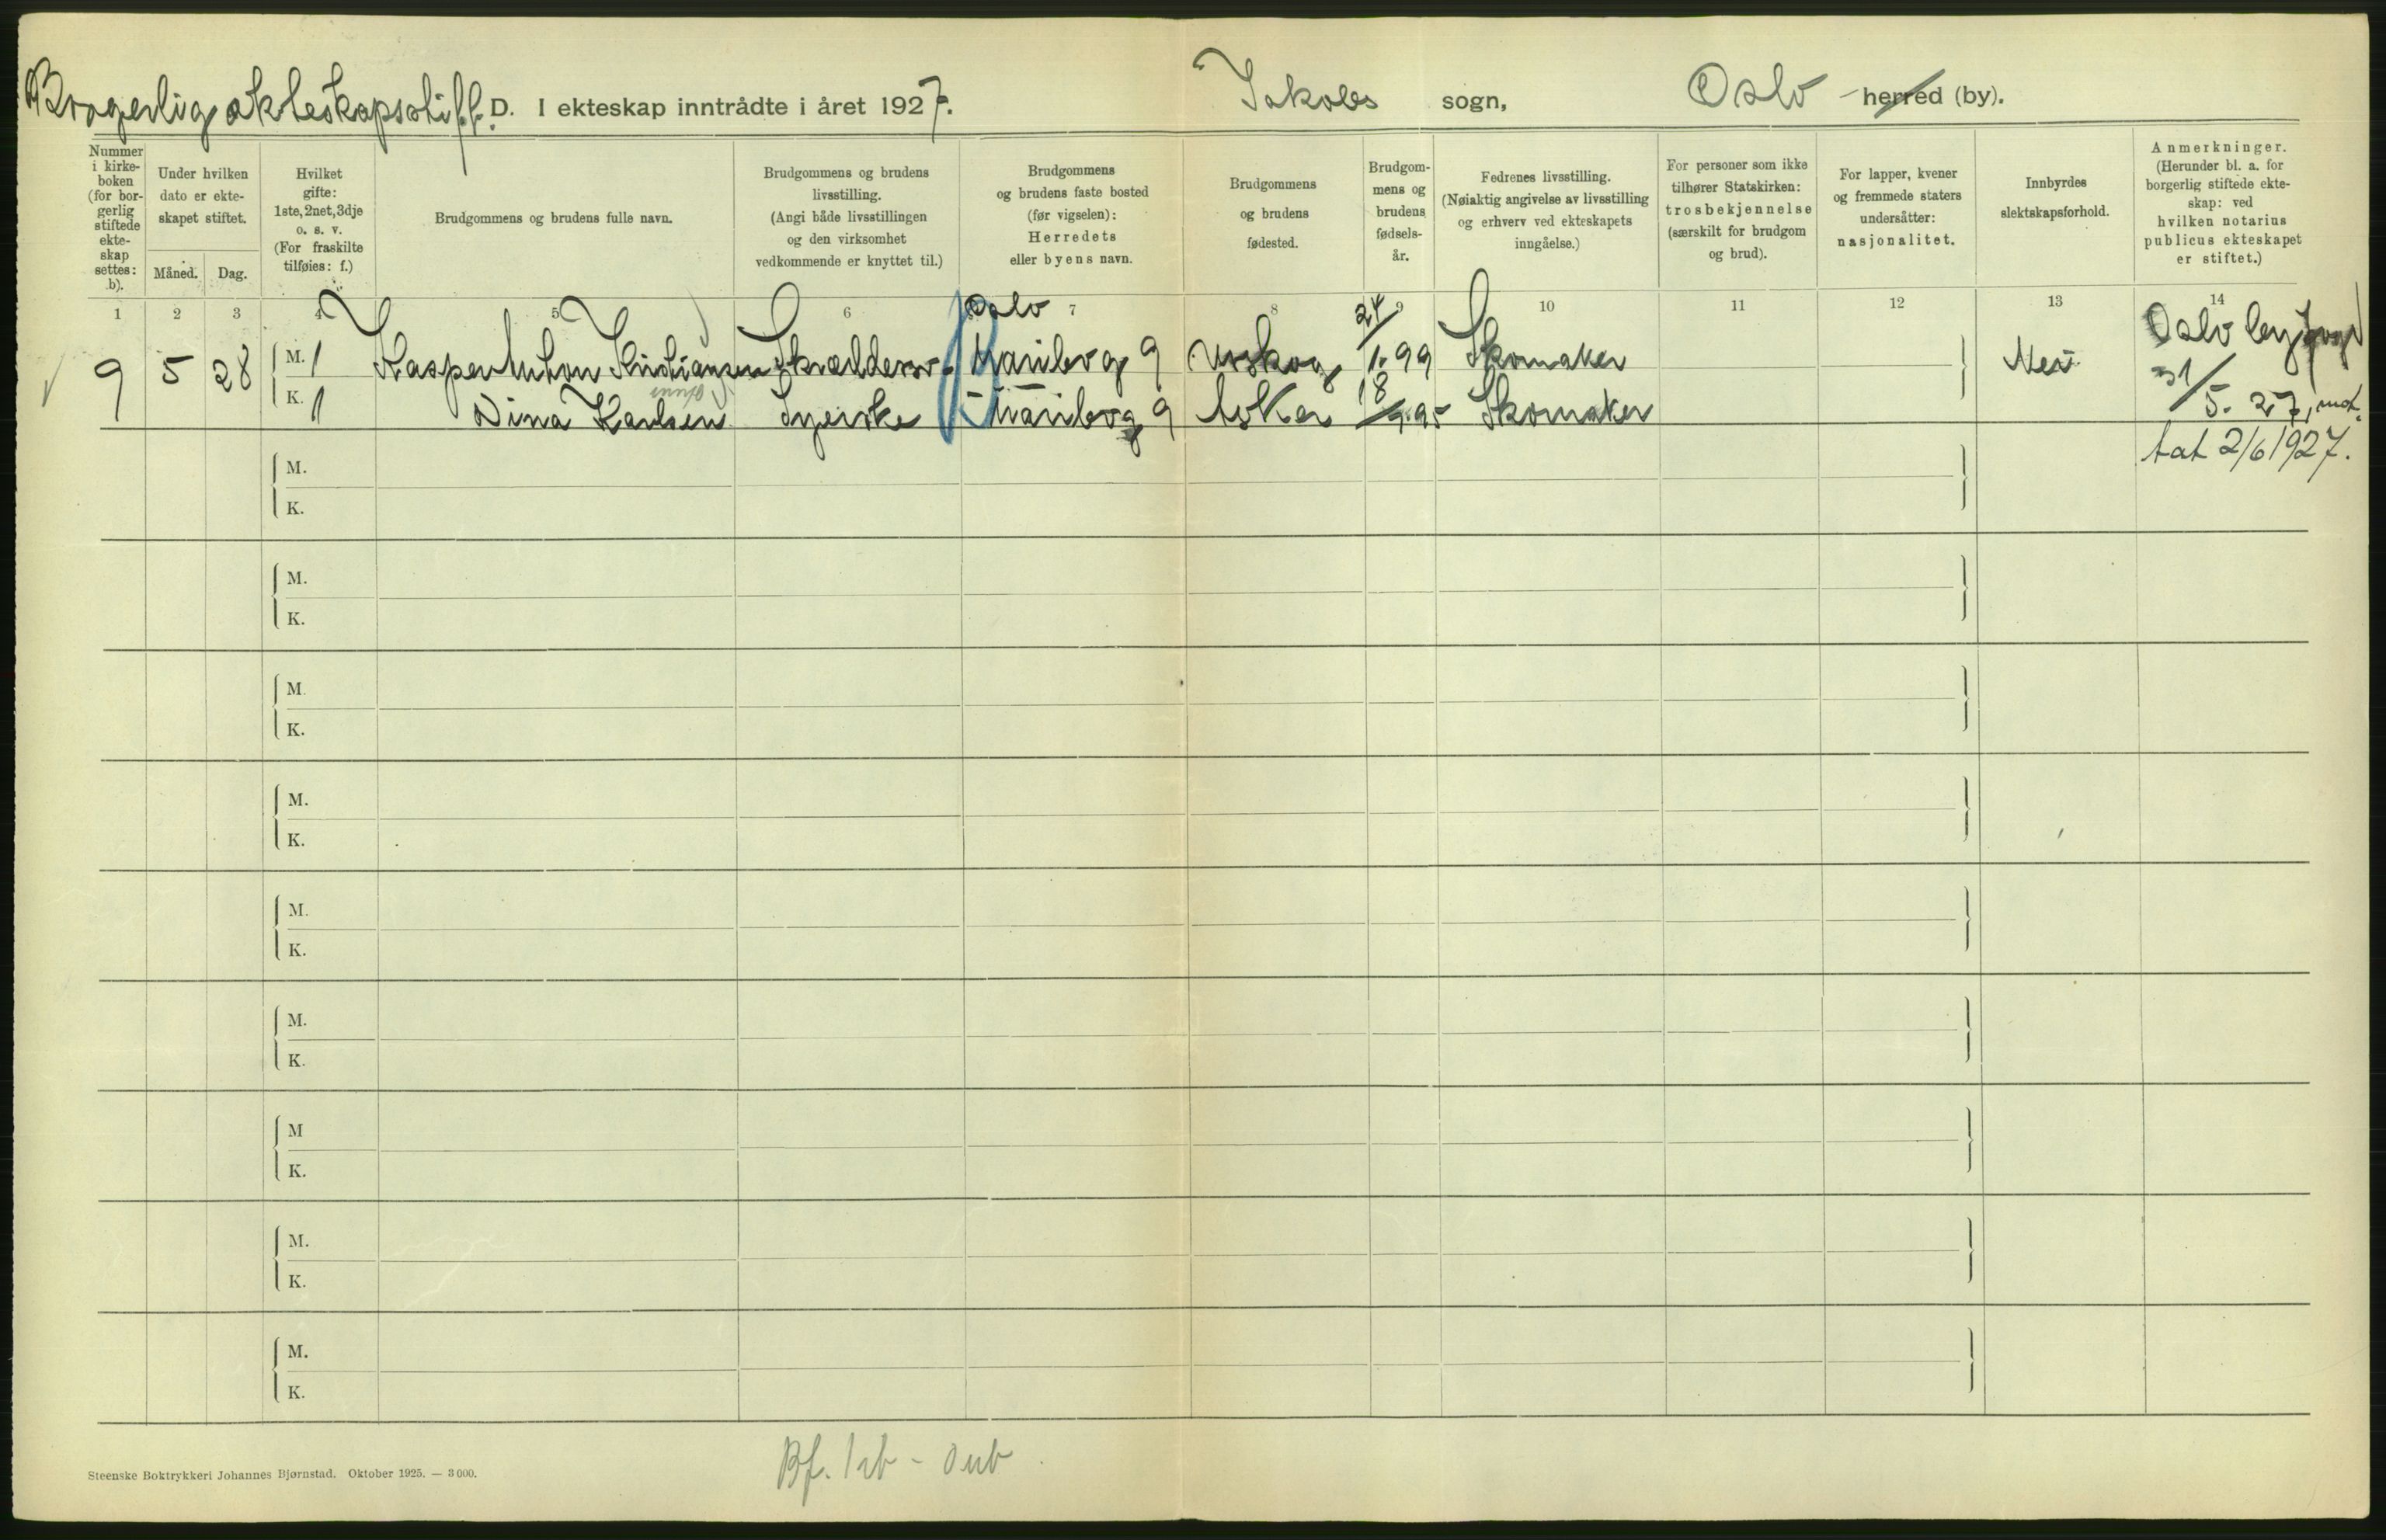 Borgerlig ekteskapsstift. D. I ekteskap inntrådte i året 1927. Jakobs sogn, Oslo herred (by).
Nummer i kirke-boken (for bor-gerlig stiftede ekte-skap settes: b).
Under hvilken dato er ekte-skapet stiftet.
Måned. Dag.
Hvilket gifte: 1ste, 2net, 3dje o. s. v. (For fraskilte tilføies: f.)
Brudgommens og brudens fulle navn.
Brudgommens og brudens livsstilling. (Angi både livsstillingen og den virksomhet vedkommende er knyttet til.)
Brudgommens og brudens faste bosted (før vigselen): Herredets eller byens navn.
Brudgommens og brudens fødested.
Brudgom-mens og brudens fødsels-år.
Fedrenes livsstilling. (Nøiaktig angivelse av livsstilling og erhverv ved ekteskapets inngåelse.)
For personer som ikke tilhører Statskirken: trosbekjennelse (særskilt for brudgom og brud).
For lapper, kvener og fremmede staters undersåtter: nasjonalitet.
Innbyrdes slektskapsforhold.
Anmerkninger. (Herunder bl. a. for borgerlig stiftede ekte-skap: ved hvilken notarius publicus ekteskapet er stiftet.)
1 2 3 4 5 6 7 8 9 10 11 12 13 14
Oslo
9 5 28 M. 1 Kasper Anton Kristiansen Skreddersv. Maribog 9 Urskog 24/1.99 Skomaker Nei Oslo byfogd
K. 1 Dina Karlsen Syerske Maribog 9 Asker 18/9.95 Skomaker 31/5.27, mot-
tat 2/6 1927.
M.
K.
M.
K.
M.
K.
M.
K.
M.
K.
M.
K.
M
K.
M.
K.
M.
K.
Bf. 1 ub - 0 ub
Steenske Boktrykkeri Johannes Bjørnstad. Oktober 1925. — 3 000.